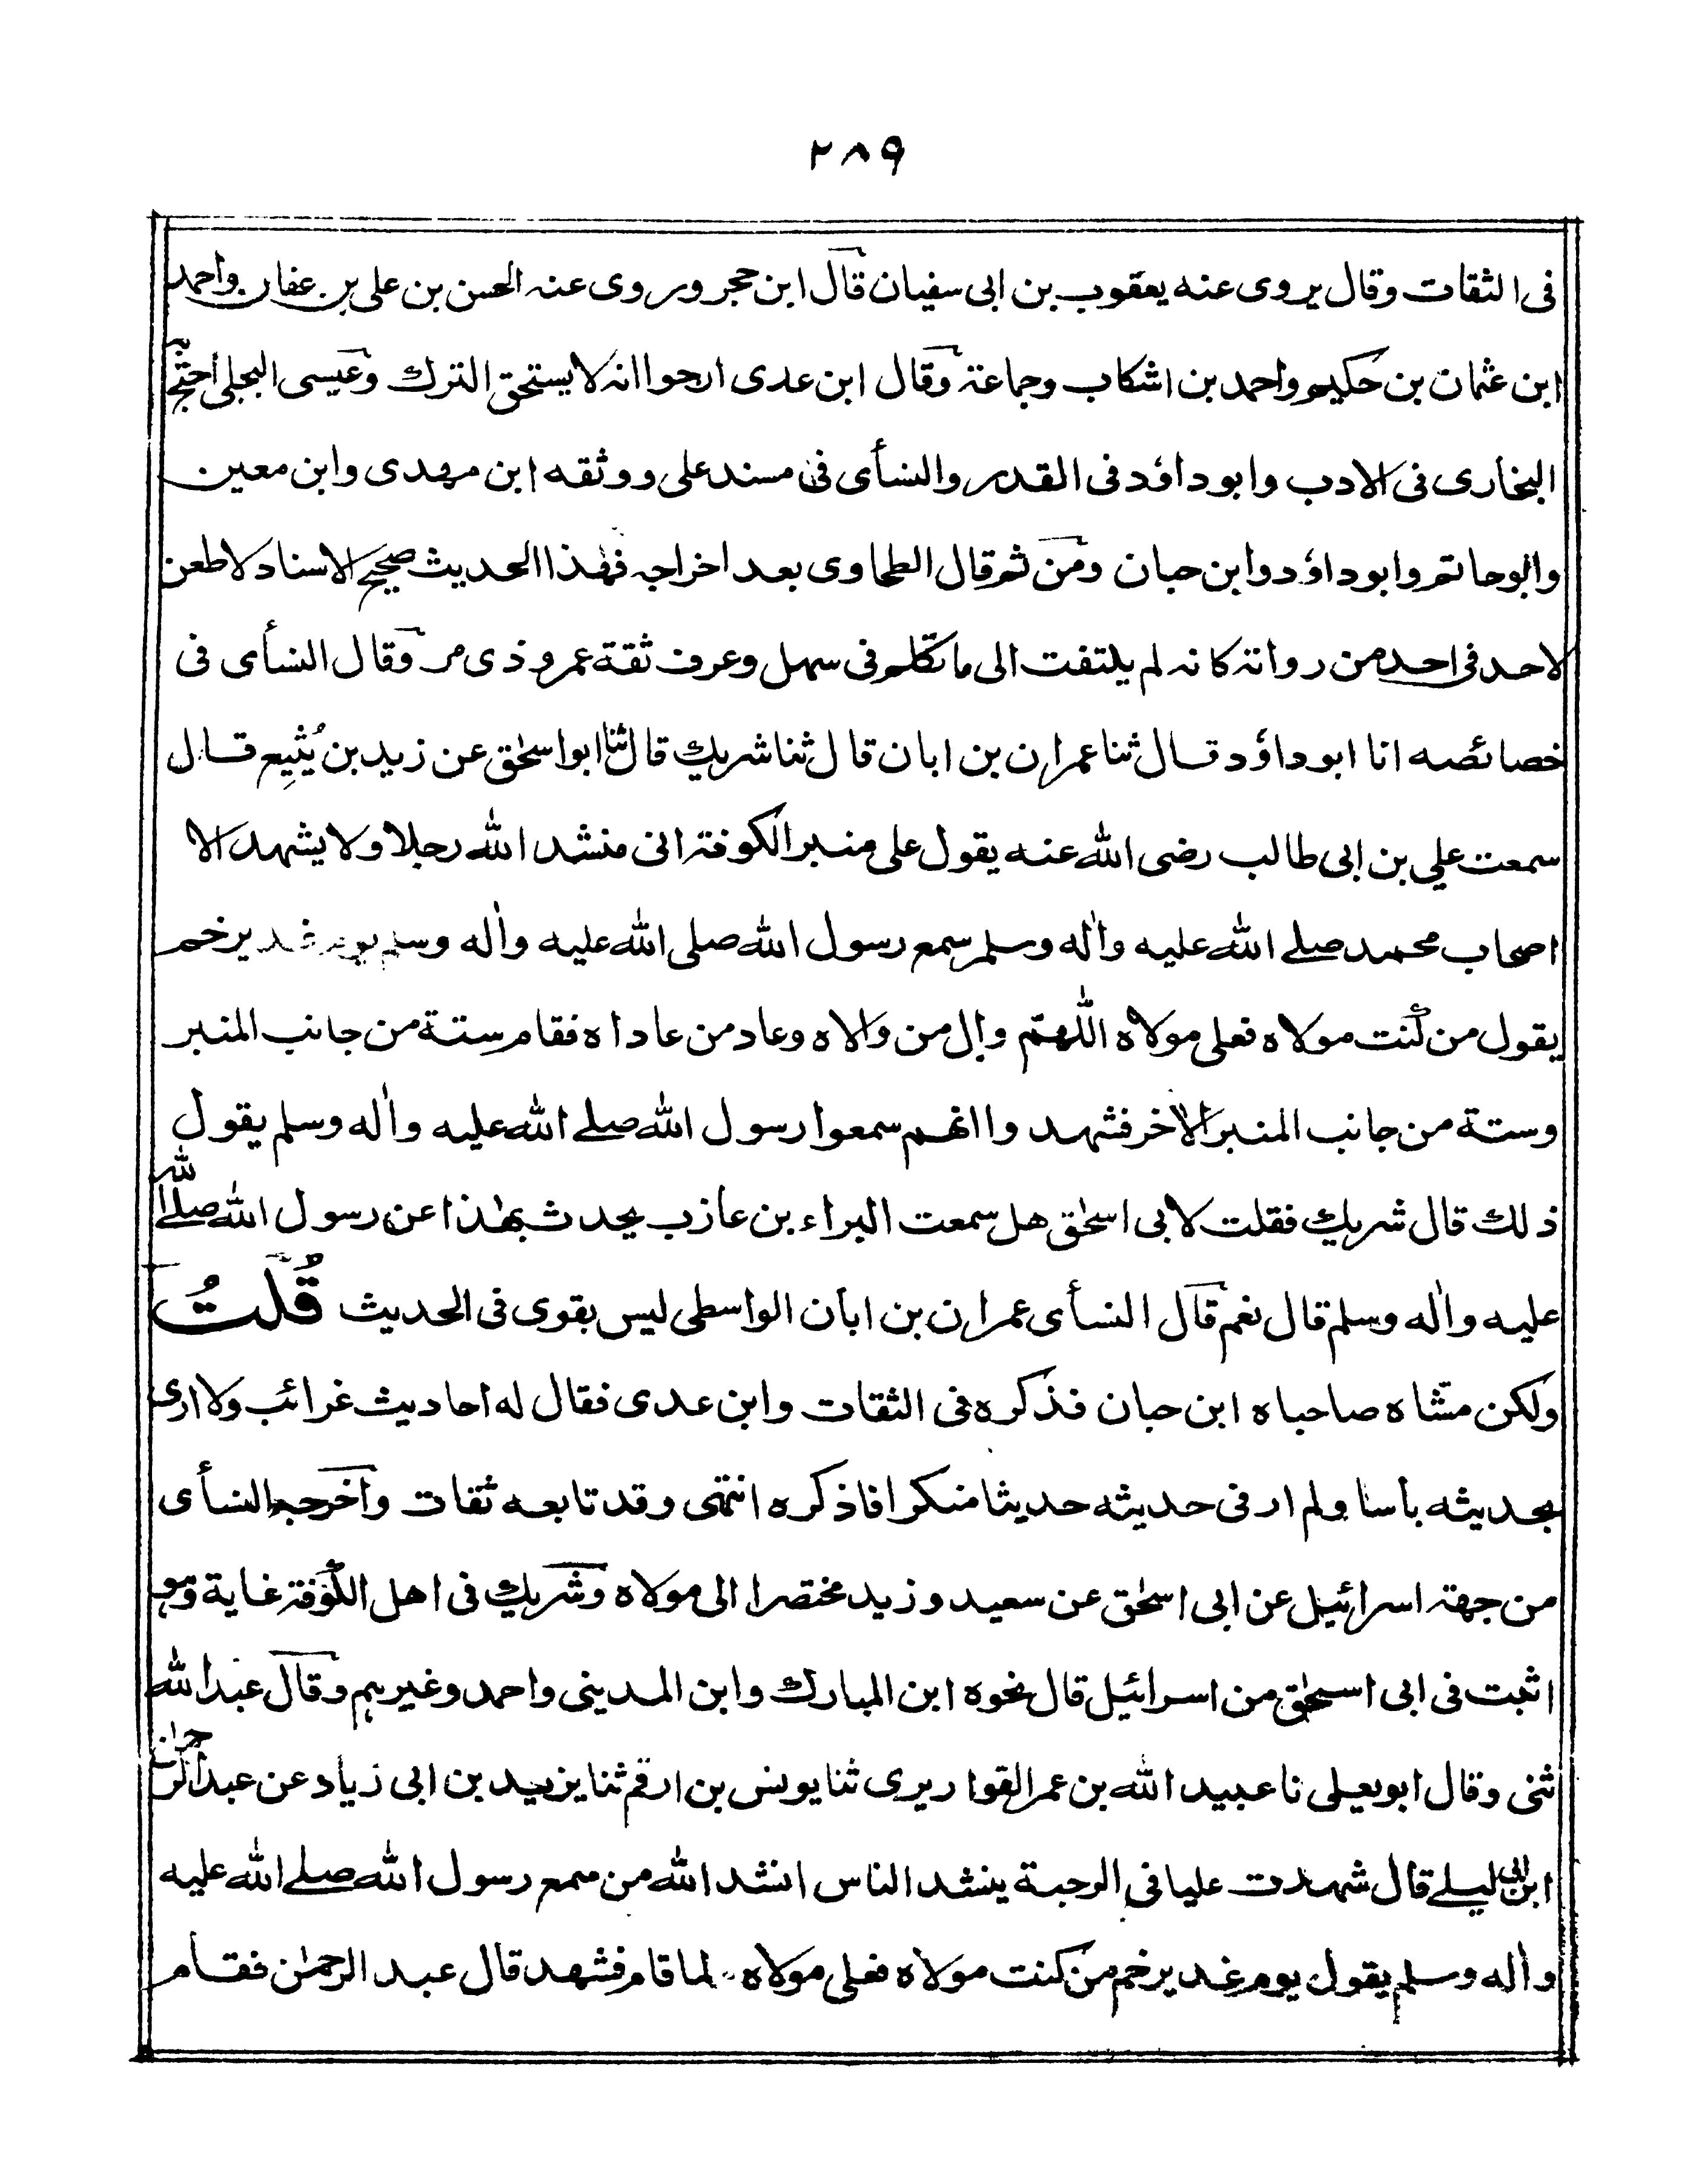 ٢٨٩
فى الثقات وقال يروى عنه يعقوب بن ابى سفيان قال ابن حجر وروى عنه الحسن بن على بن عفان واحمد
ابن عثمان بن حكيم واحمد بن اشكاب وجماعة وقال ابن عدى ارجوا انه لا يستحق الترك وعيسى البجلى احتج
البخارى فى الادب وابو داؤد فى القدر والنسأى فى مسند على ووثقه ابن مهدى وابن معين
وابو حاتم وابو داؤد وابن حبان ومن ثم قال الطحاوى بعد اخراجه فهذا الحديث صحيح الاسناد لا طعن
لاحد فى احد من رواته كانه لم يلتفت الى ما تكلم فى سهل وعرف ثقة عمرو ذى مر وقال النسأى فى
خصائصه انا ابو داؤد قال ثنا عمران بن ابان قال ثنا شريك قال ثنا ابو اسحٰق عن زيد بن يُثيِع قال
سمعت علي بن ابى طالب رضى الله عنه يقول على منبر الكوفة انى منشد الله رجلا ولا يشهد الا
اصحاب محمد صلے الله عليه واٰله وسلم سمع رسول الله صلى الله عليه واٰله وسلم يوم غديرخم
يقول من كنت مولاه فعلى مولاه اللّٰهم وال من والاه وعاد من عاداه فقام ستة من جانب المنبر
وستة من جانب المنبر الاٰخر فشهد وا انهم سمعوا رسول الله صلے الله عليه واٰله وسلم يقول
ذلك قال شريك فقلت لابى اسحٰق هل سمعت البراء بن عازب يحدث بهٰذا عن رسول الله صلے الله
عليه واٰله وسلم قال نعم قال النسأى عمران بن ابان الواسطى ليس بقوى فى الحديث قُلتُ
ولكن مشاه صاحباه ابن حبان فذكره فى الثقات وابن عدى فقال له احاديث غرائب ولا ارى
بحديثه بأسا ولم ار فى حديثه حديثا منكرا فاذكره انتهى وقد تابعه ثقات واخرجه النسأى
من جهة اسرائيل عن ابى اسحٰق عن سعيد وزيد مختصرا الى مولاه وشريك فى اهل الكوفة غاية وهو
اثبت فى ابى اسحٰق من اسرائيل قال نحوه ابن المبارك وابن المدينى واحمد وغيرهم وقال عبد الله
ثنى وقال ابو يعلى نا عبيد الله بن عمر القواريرى ثنا يونس بن ارقم ثنا يزيد بن ابى زياد عن عبد الرحمٰن
ابن ابى ليلے قال شهدت عليا فى الرحبة ينشد الناس انشد الله من سمع رسول الله صلے الله عليه
واٰله وسلم يقول يوم غديرخم من كنت مولاه فعلى مولاه لما قام فشهد قال عبد الرحمٰن فقام